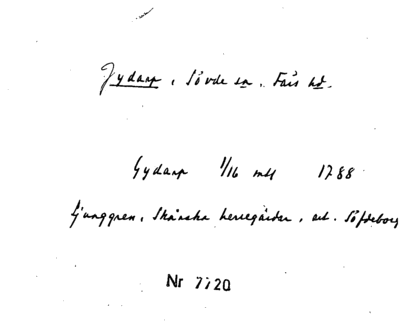 Jydarp, Sövde sn. Färs hd.
Gydarp 1/16 mtl 1788
Ljunggren, Skånska herregårdar, art. Söfdeborg
Nr 7720